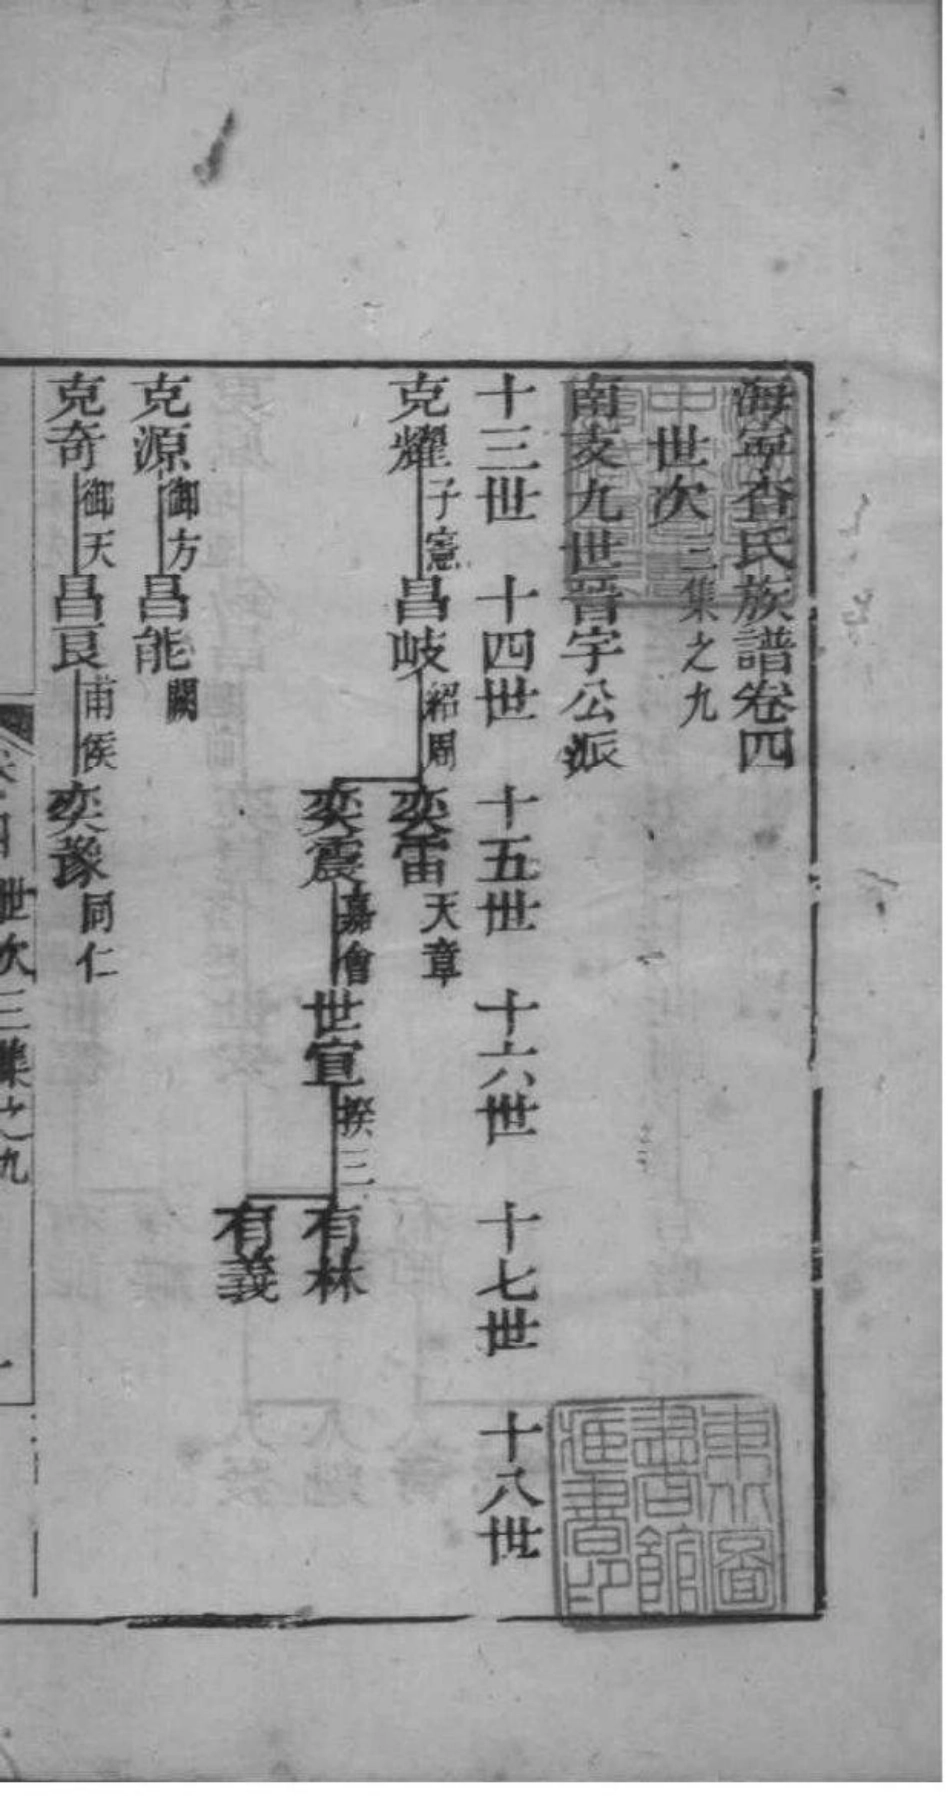 海寧查氏族譜卷四
世次三集之九
南支九世晉宇公派
十三世 十四世 十五世 十六世 十七世 十八世
克耀子憲 昌岐紹周 奕雷天章
奕震嘉會 世宣揆三 有林
有義
克源御方 昌能闕
克奇御天 昌良甫侯 奕豫同仁
卷四 世次三集之九 一
東圖
書館